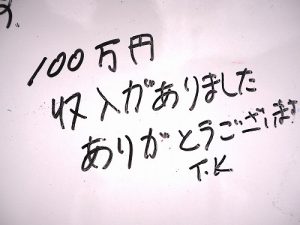 100万円
収入がありました
ありがとうございます
T.K